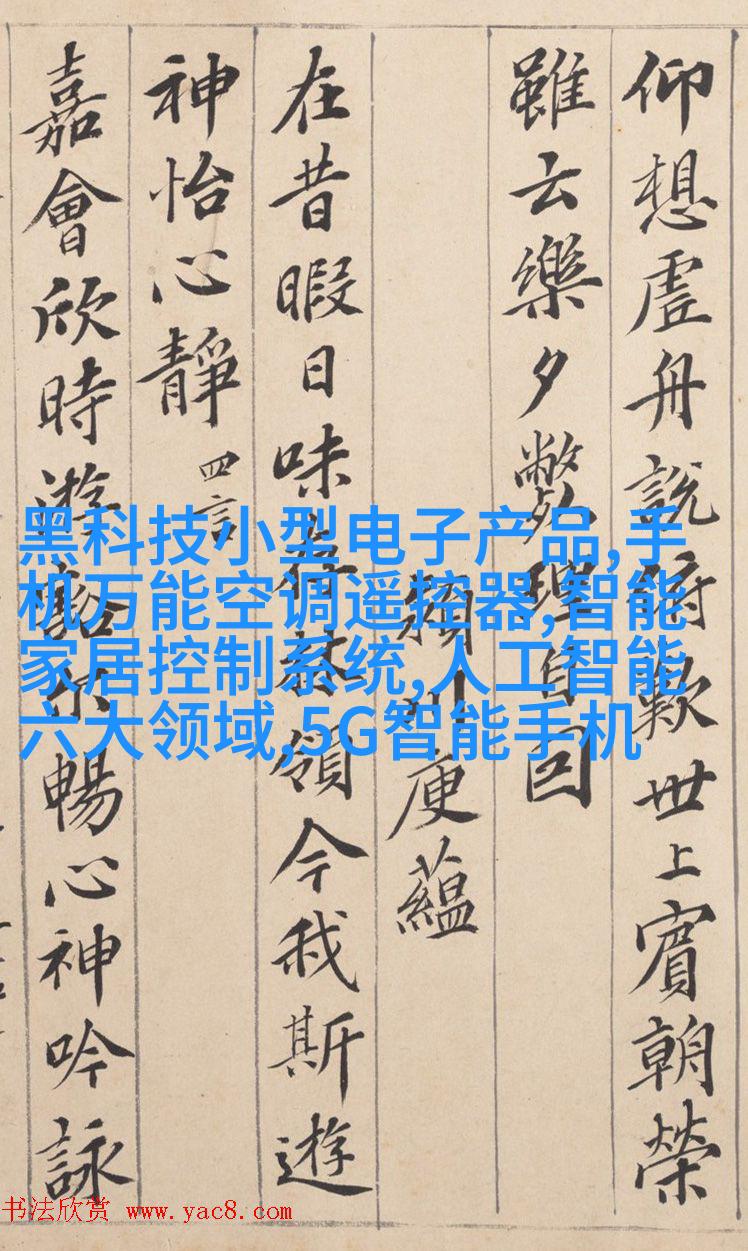 仰想虛舟說俯歎世上賓朝榮
雖云樂夕斃理自回
川庾蘊
在昔暇日味存林嶺今我斯遊
神怡心靜 四言
嘉會欣時遊豁尔暢心神吟詠
黑科技小型电子产品,手
机万能空调遥控器,智能
家居控制系统,人工智能
六大领域,5G智能手机
书法欣赏 www.yac8.com